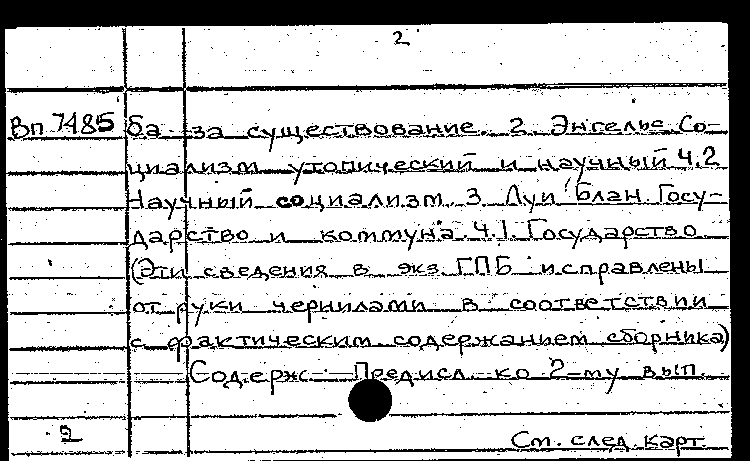 2
Вп 7485 ба за существование. 2 Энгельс Со-
циализм утопический и научный Ч.2
Научный социализм 3 Луи Блан Госу-
дарство и коммуна Ч.1. Государство
(Эти сведения в экз. ГПБ исправлены
от руки чернилами в соответствии
с фактическим содержанием сборника)
Содерж. Предисл. ко 2-му вып.
2
См. след. карт